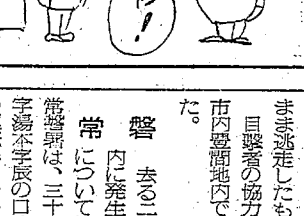 まま逃走したも
目撃者の協力
市内豊間地内で
た。
常磐
去る二
内に発生
について
常磐署は、三十
字湯本字辰の口